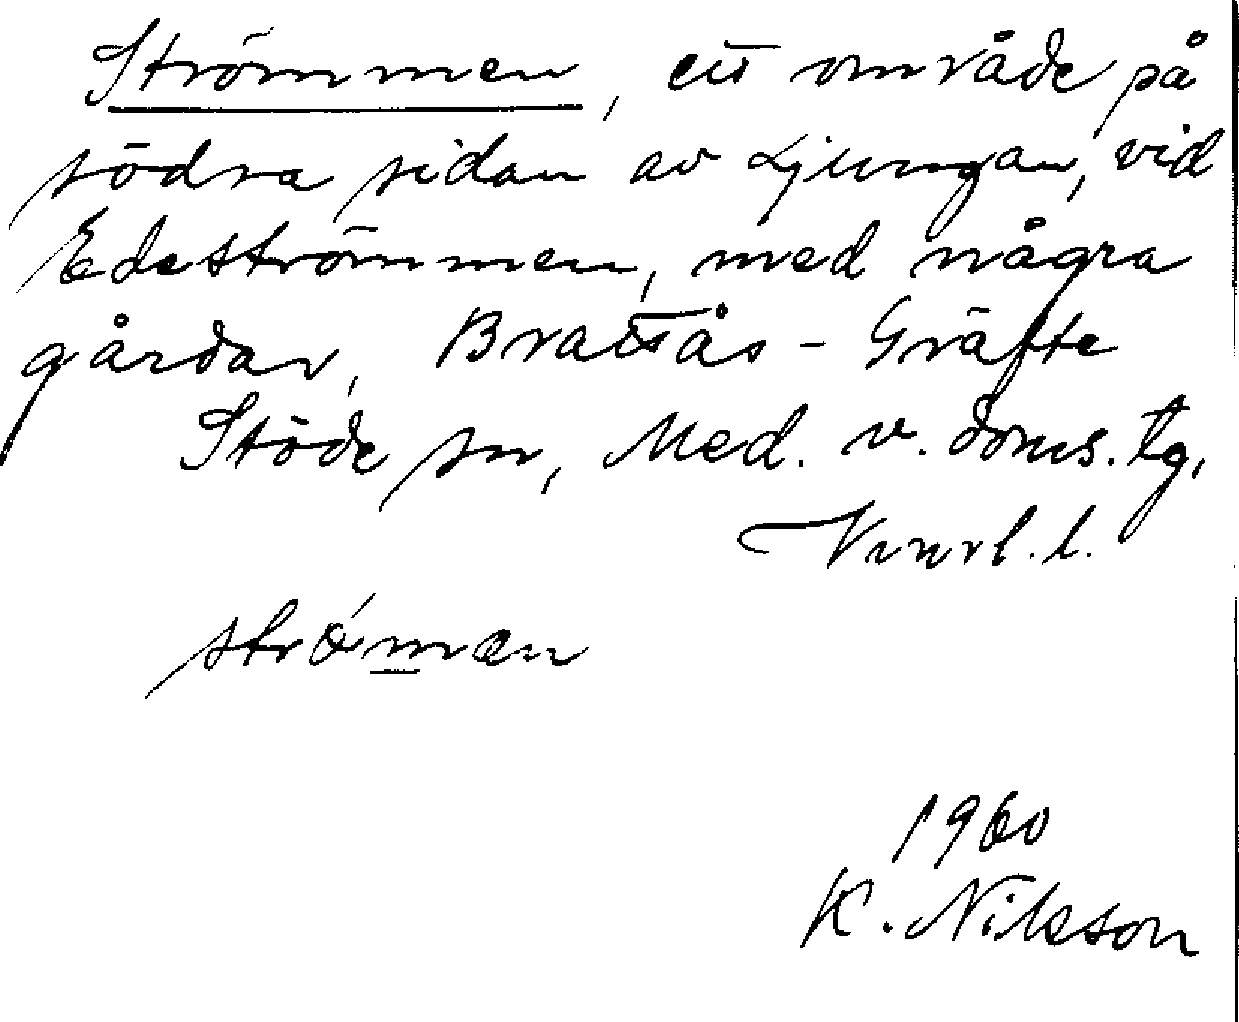 Strömmen, ett område på
södra sidan av Ljungan, vid
Edeströmmen, med några
gårdar, Brattås - Gräfte
Stöde sn, Med. v. doms. tg,
Vnrl. l.
strǿmen
1960
K. Nilsson